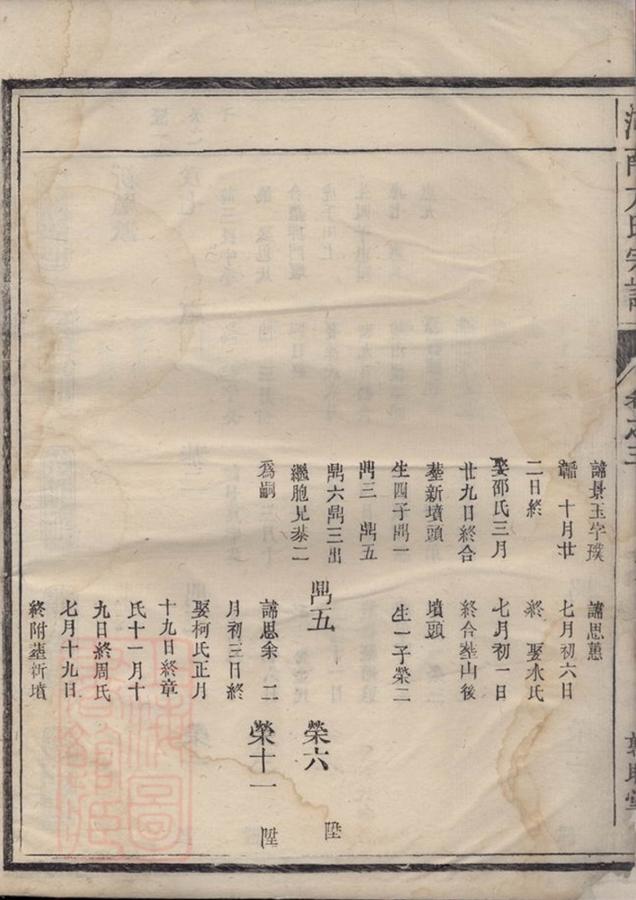 卷之三
諱景玉字璞
十月廿
二日終
娶邵氏三月
廿九日終合
塟新墳頭
生四子鼎一
鼎三 鼎五
鼎六鼎三出
繼胞兄恭二
為嗣
諱思蕙
七月初六日
終 娶水氏
七月初一日
終合塟山後
墳頭
生一子榮二
鼎五
諱思余 二
月初三日終
娶柯氏正月
十九日終章
氏十一月十
九日終周氏
七月十九日
終附塟新墳
榮六 陞
榮十一 陞